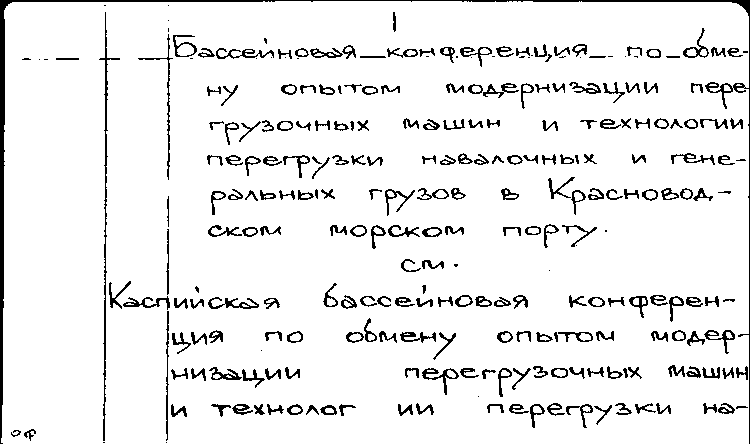 1
Бассейновая конференция по обме-
ну опытом модернизации пере
грузочных машин и технологии
перегрузки навалочных и гене-
ральных грузов в Красновод-
ском морском порту.
см.
Каспийская бассейновая конферен-
ция по обмену опытом модер-
низации перегрузочных машин
и технолог ии перегрузки на-
оф